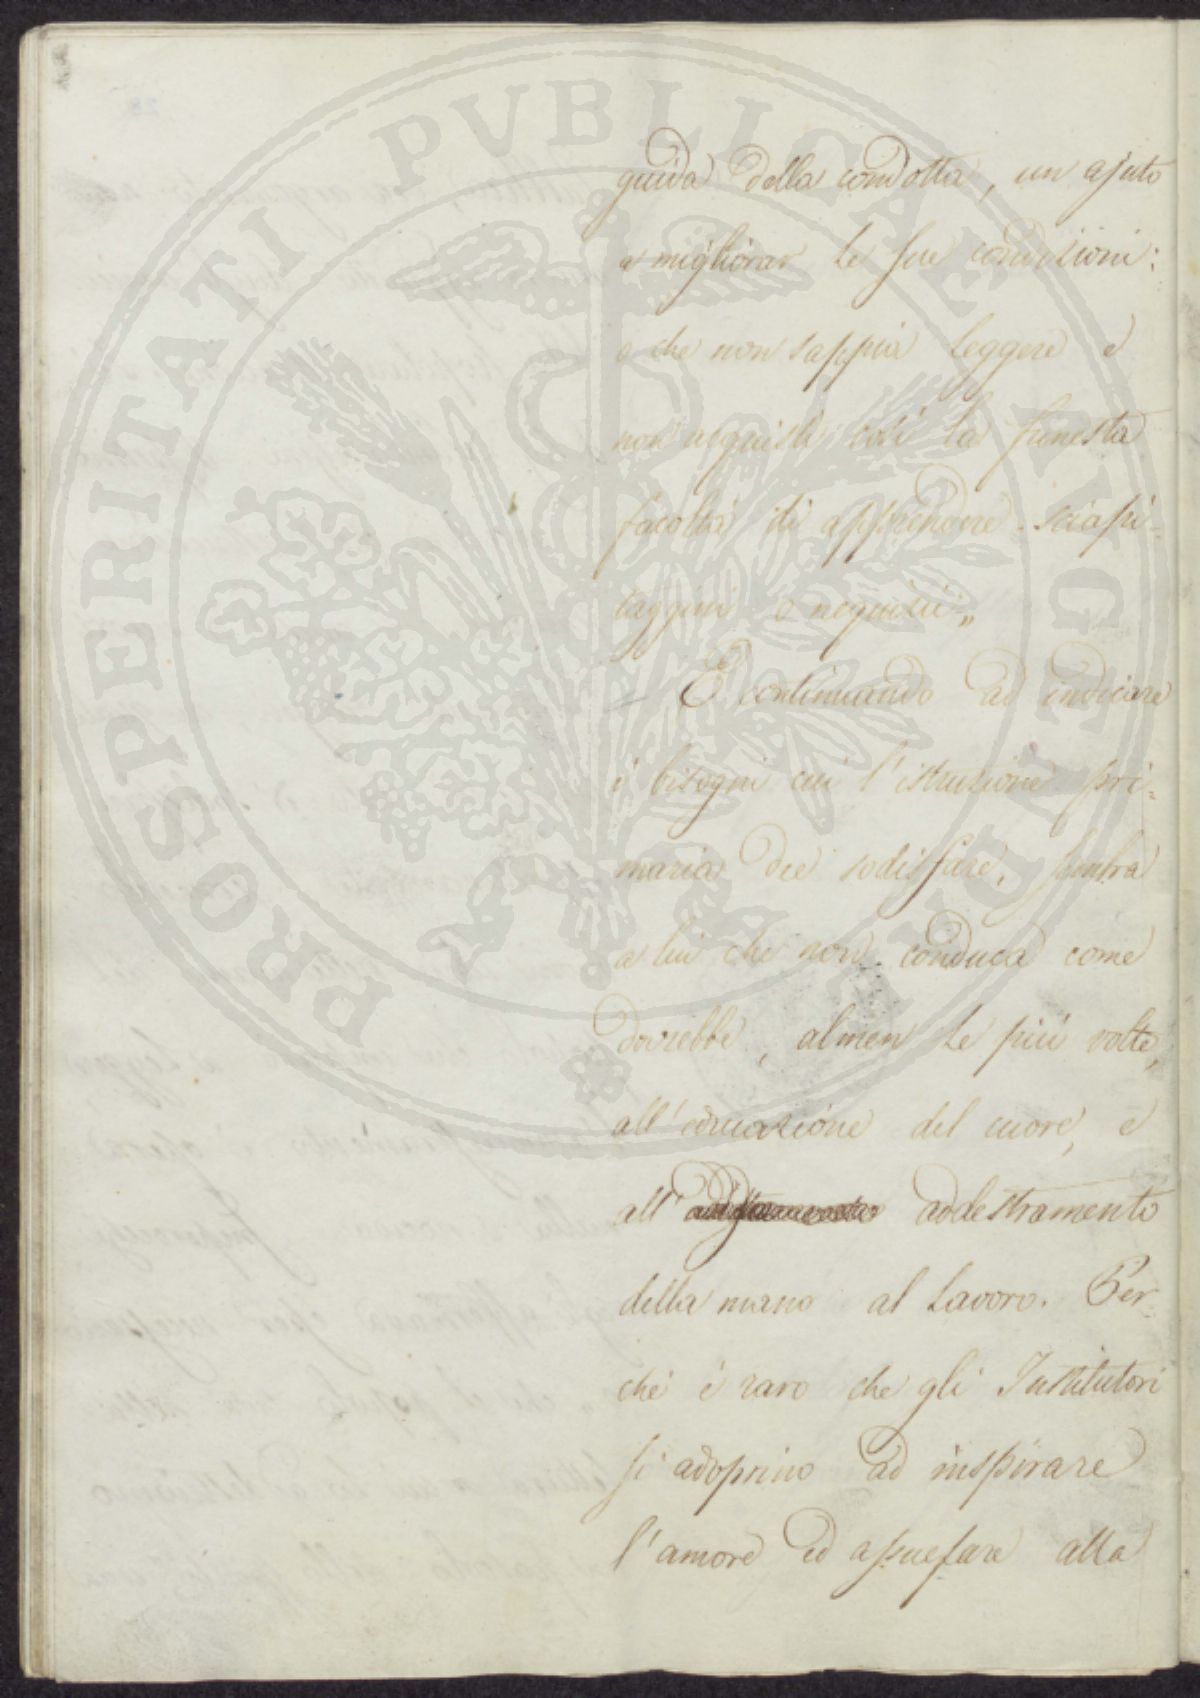 PROSPERITATI PUBLICAE AUGENDAE
guida della condotta, un ajuto
a migliorar le sue condizioni:
o che non sappia leggere e
non acquisti così la funesta
facoltà di apprendere sciapi-
taggini o nequizie„
E continuando ad indicare
i bisogni cui l'istruzione pri=
maria dee sodisfare, sembra
a lui che non conduca come
dovrebbe, almen le più volte,
all'educazione del cuore, e
all' addestramento
della mano al lavoro. Per-
chè è raro che gli Institutori
si adoprino ad inspirare
l'amore ed assuefare alla